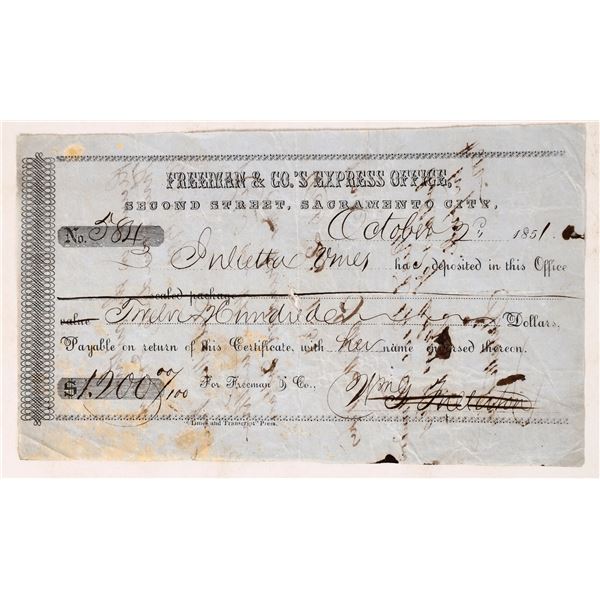 FREEMAN & CO.'S EXPRESS OFFICE,
SECOND STREET, SACRAMENTO CITY,
No. 584 October 2d. 1851.
Julietta has deposited in this Office
sealed package
value Twelve Hundred Dollars,
Payable on return of this Certificate, with her name endorsed thereon.
$1,200 00/100 For Freeman & Co., Wm
Times and Transcript Press.